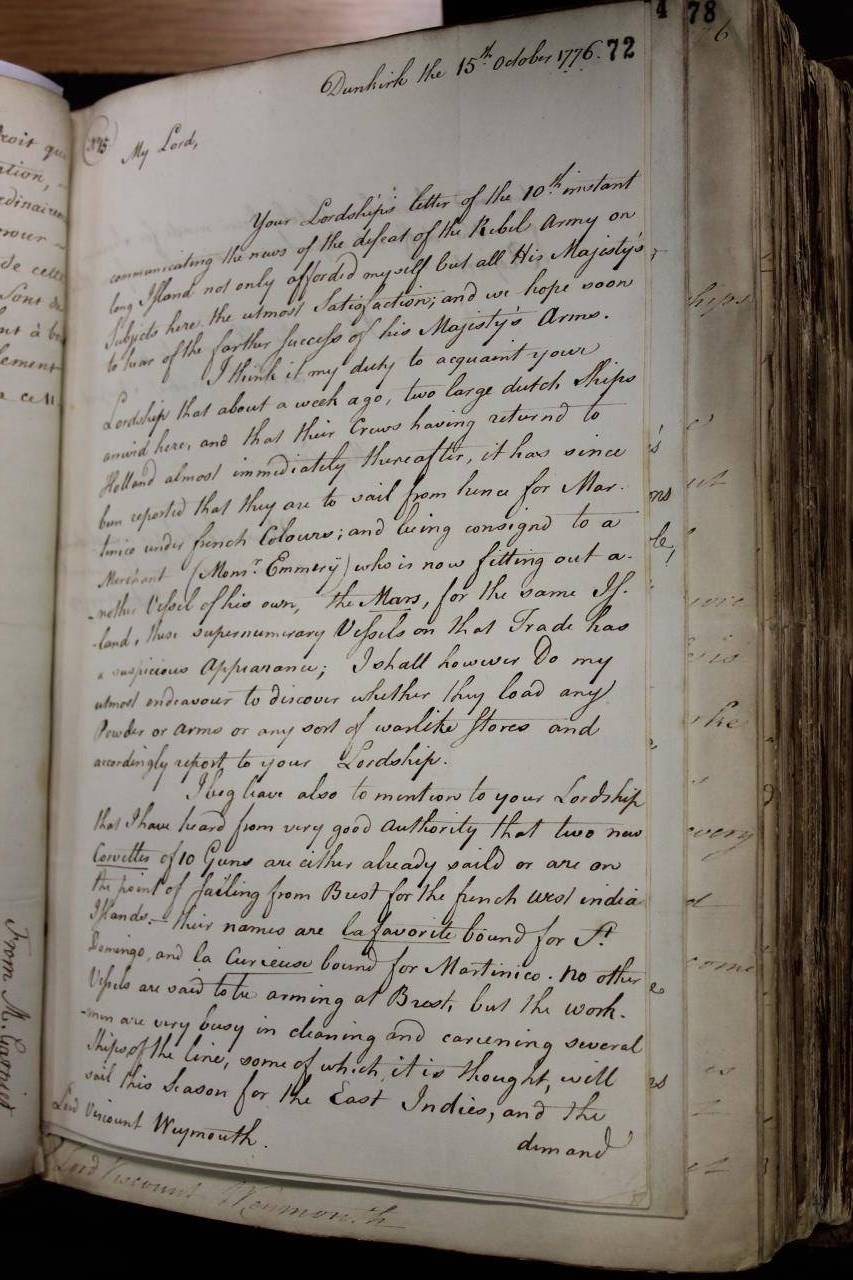 4 78
Dunkirk the 15th October 1776. 72
My Lord,
Your Lordship's letter of the 10th instant
communicating the news of the defeat of the Rebel Army on
long Island not only afforded myself but all His Majesty's
Subjects here, the utmost Satisfaction; and we hope soon
to hear of the farther success of his Majesty's Arms.
I think it my duty to acquaint your
Lordship that about a week ago, two large dutch Ships
arrivd here, and that their Crews having returnd to
Holland almost immediately thereafter, it has since
been reported that they are to sail from hence for Mar-
tinico under french Colours; and being consignd to a
Merchant (Monsr. Emmery) who is now fitting out a-
-nother Vessel of his own, the Mars, for the same Is-
-land, these supernumerary Vessels on that Trade has
a suspicious Appearance; I shall however Do my
utmost endeavour to discover whether they load any
Powder or Arms or any sort of warlike Stores and
accordingly report to your Lordship.
I beg leave also to mention to your Lordship
that I have heard from very good authority that two new
Corvettes of 10 Guns are either already saild or are on
the point of sailing from Brest for the french West india
Islands.- their names are la favorite bound for St.
Domingo, and la Curieuse bound for Martinico. no other
Vessels are said to be arming at Brest, but the work-
-men are very busy in cleaning and careening several
Ships of the line, some of which, it is thought, will
sail this Season for the East Indies, and the
demand
Lord Viscount Weymouth.
Lord Viscount Weymouth
From M. Garnier